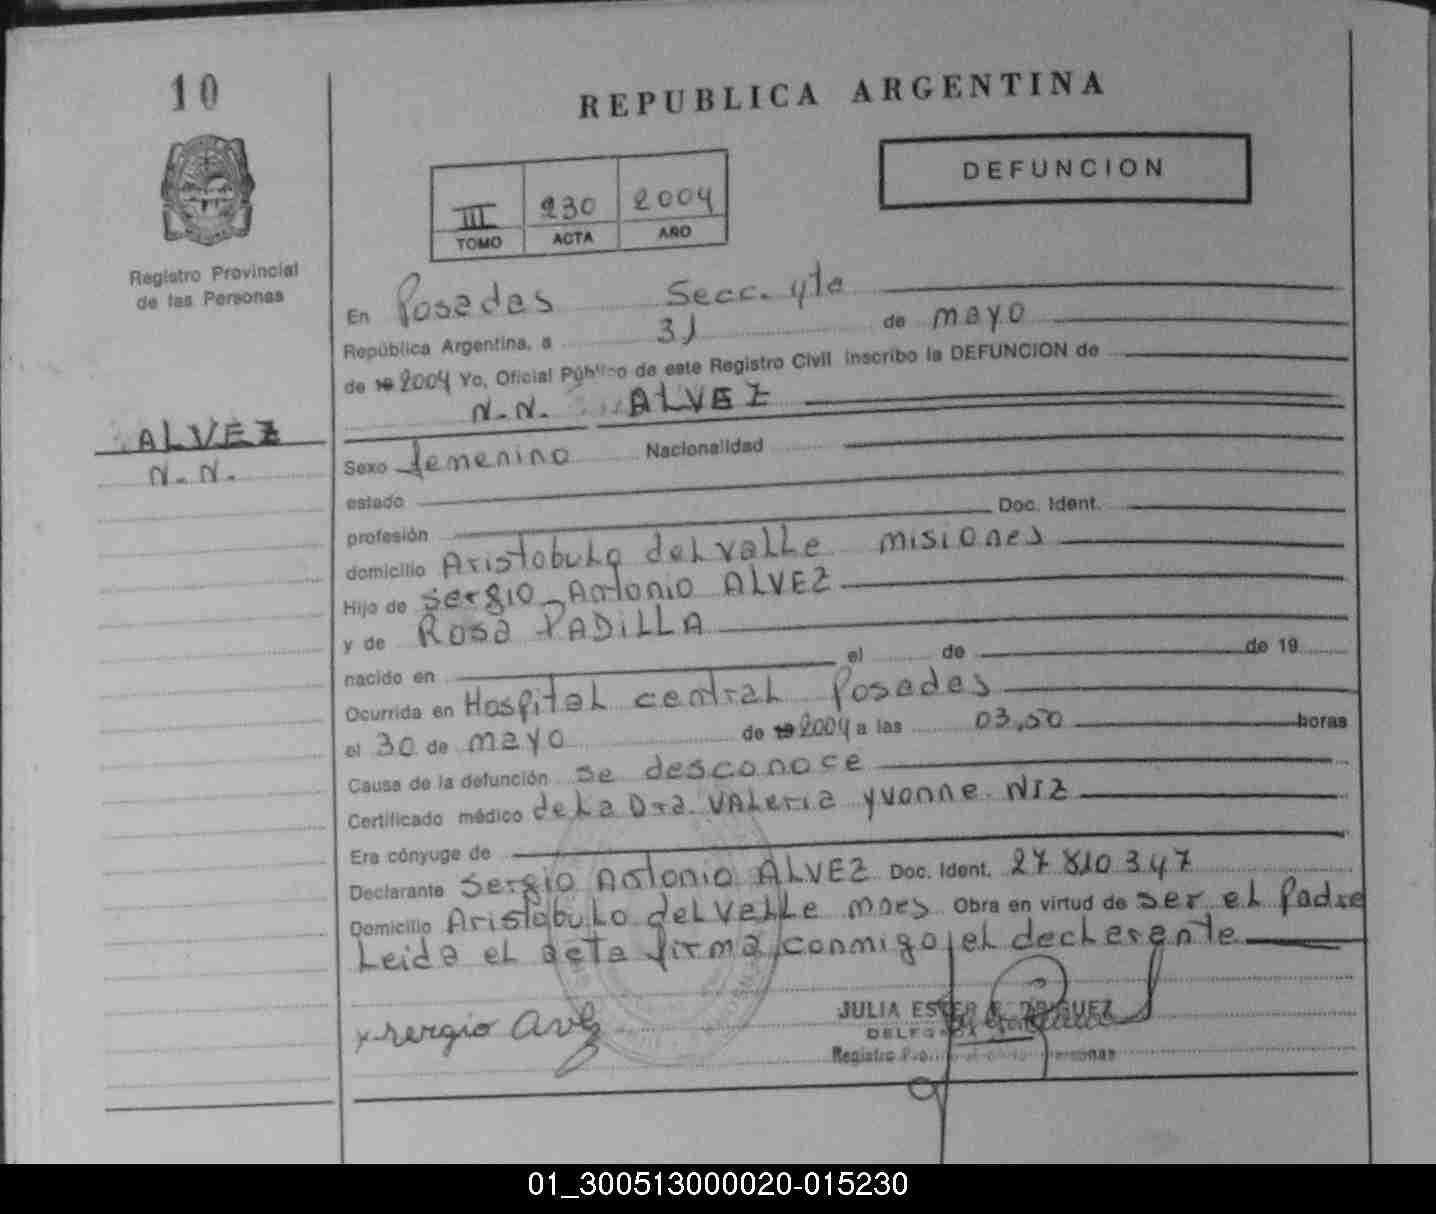 10
REPUBLICA ARGENTINA
DEFUNCION
III 230 2004
TOMO ACTA AÑO
Registro Provincial
de las Personas
En Posadas Secc. 4ta
República Argentina, a 31 de mayo
de 19 2004 Yo, Oficial Público de este Registro Civil inscribo la DEFUNCION de
N.N. ALVEZ
ALVEZ
N.N.
Sexo femenino Nacionalidad
estado
profesión Doc. Ident.
domicilio Aristobulo del valle misiones
Hijo de Sergio Antonio ALVEZ
y de Rosa PADILLA
nacido en el de de 19
Ocurrida en Hospital central Posadas
el 30 de mayo de 19 2004 a las 03,50 horas
Causa de la defunción se desconoce
Certificado médico de La Dra. VALeria yvonne NIZ
Era cónyuge de
Declarante Sergio Antonio ALVEZ Doc. Ident. 27 810 347
Domicilio Aristobulo del Valle mnes Obra en virtud de ser el Padre
Leida el acta firma conmigo el declarante
x sergio
JULIA ESTER
Registro
01_300513000020-015230